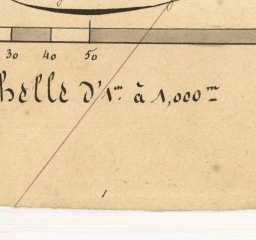 30 40 50
helle d'1m à 1,000m